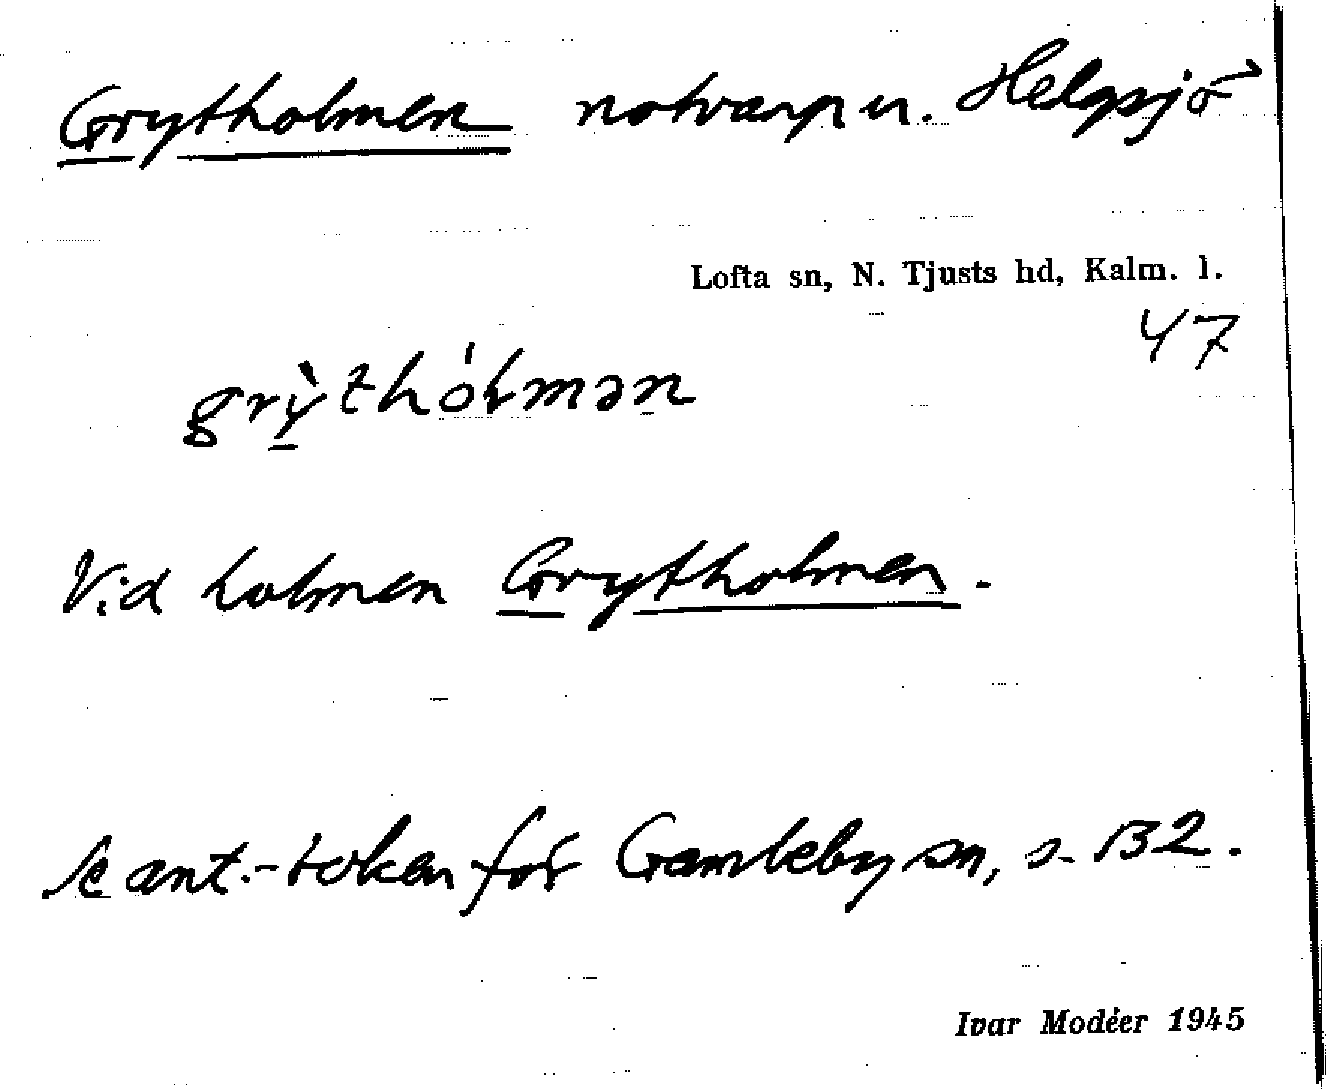 Grytholmen notvarp u. Helgsjö
Lofta sn, N. Tjusts hd, Kalm. l.
47
grỳthólmən
Vid holmen Grytholmen.
Se ant.-boken för Gamleby sn, s. 132.
Ivar Modéer 1945